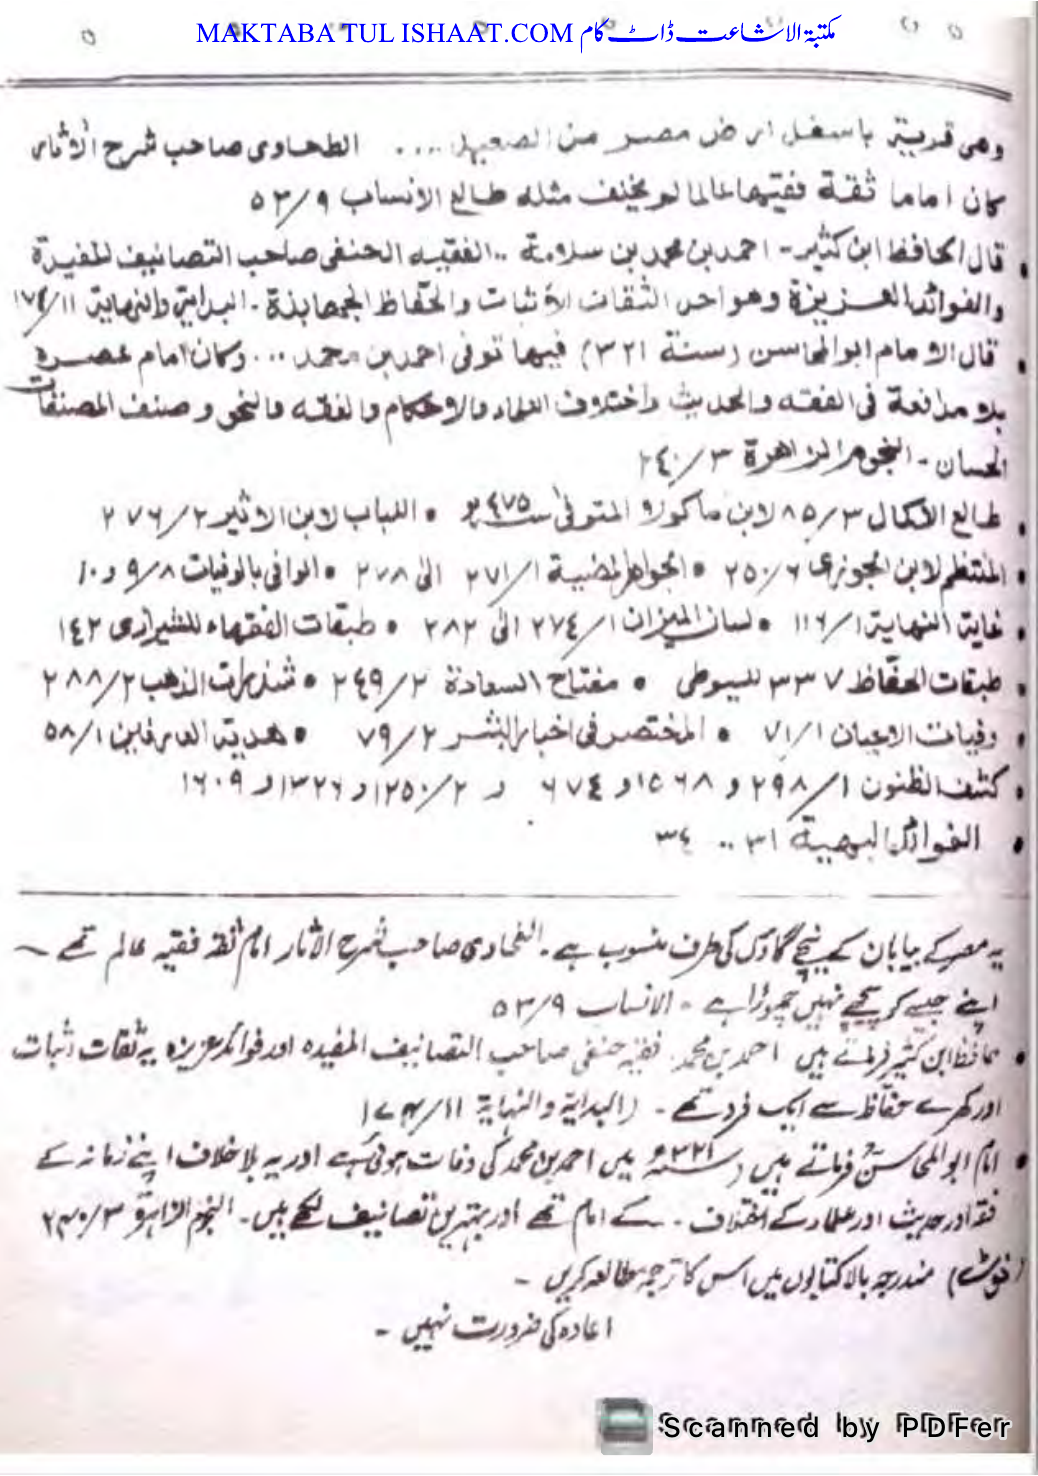 MAKTABA TUL ISHAAT.COM مکتبۃ الاشاعت ڈاٹ کام
وهى قرية باسفل ارض مصر من الصعيد .... الطحاوى صاحب شرح الآثار
كان اماما ثقة فقيها عالما لم يخلف مثله طالع الانساب ٥٣/٩
• قال الحافظ ابن كثير - احمد بن محمد بن سلامة .. الفقيه الحنفى صاحب التصانيف المفيدة
والفوائد العزيزة وهو احد الثقات الاثبات والحفاظ الجهابذة - البداية والنهاية ١٧٤/١١
• قال الامام ابو المحاسن (سنة ٣٢١) فيها توفى احمد بن محمد ... وكان امام عصره
بلا مدافعة فى الفقه والحديث واختلاف العلماء والاحكام والفقه والنحو وصنف المصنفات
الحسان - النجوم الزاهرة ٢٤٠/٣
• طالع الاكمال ٨٥/٣ لابن ماكولا المتوفى سنة ٤٧٥ • اللباب لابن الاثير ٢٧٦/٢
• المنتظم لابن الجوزى ٢٥٠/٦ • الجواهر المضيية ٢٧١/١ الى ٢٧٨ • الوافى بالوفيات ٩/٨ و ١٠
• غاية النهاية ١١٦/١ • لسان الميزان ٢٧٤/١ الى ٢٨٢ • طبقات الفقهاء للشيرازى ١٤٢
• طبقات الحفاظ ٣٣٧ للسيوطى • مفتاح السعادة ٢٤٩/٢ • شذرات الذهب ٢٨٨/٢
• وفيات الاعيان ٧١/١ • المختصر فى اخبار البشر ٧٩/٢ • هدية العارفين ٥٨/١
• كشف الظنون ٢٩٨/١ و ٥٦٨ او ٦٧٤ و ١٢٥٠/٢ و ١٣٢٦ و ١٦٠٩
• الفوائد البهية ٣١ .. ٣٤
یہ مصر کے بیابان کے نیچے گاؤں کی طرف منسوب ہے۔ الطحاوی صاحب شرح الآثار امام ثقہ فقیہ عالم تھے
اپنے جیسے کو پیچھے نہیں چھوڑا ہے - الانساب ٥٣/٩
• حافظ ابن کثیر فرماتے ہیں احمد بن محمد فقیہ حنفی صاحب التصانیف المفیدہ اور فوائد عزیزہ یہ ثقات اثبات
اور کھرے حفاظ سے ایک فرد تھے - (البدایہ والنہایۃ ١٧٤/١١
• امام ابو المحاسن فرماتے ہیں (سنہ ٣٢١ھ میں احمد بن محمد کی وفات ہوئی ہے اور یہ بلا خلاف اپنے زمانہ کے
فقہ اور حدیث اور علماء کے اختلاف - کے امام تھے اور بہترین تصانیف لکھے ہیں - النجوم الزاہرۃ ٢٤٠/٣
(نوٹ) مندرجہ بالا کتابوں میں اس کا ترجمہ مطالعہ کریں -
اعادہ کی ضرورت نہیں -
Scanned by PDFer